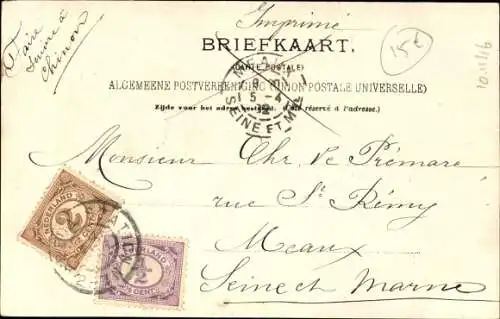 Faire
suivre à
Chinon
Imprimé
15€
10.11/16
BRIEFKAART.
(CARTE POSTALE)
ALGEMEENE POSTVEREENIGING (UNION POSTALE UNIVERSELLE)
Zijde voor het adres bestemd. (Côté réservé à l'adresse.)
MEAUX
5 - 4
SEINE ET M
Monsieur Chr. de Prémare
rue St Rémy
Meaux
Seine et Marne
NEDERLAND
2
CENT
NEDERLAND
½
CENT